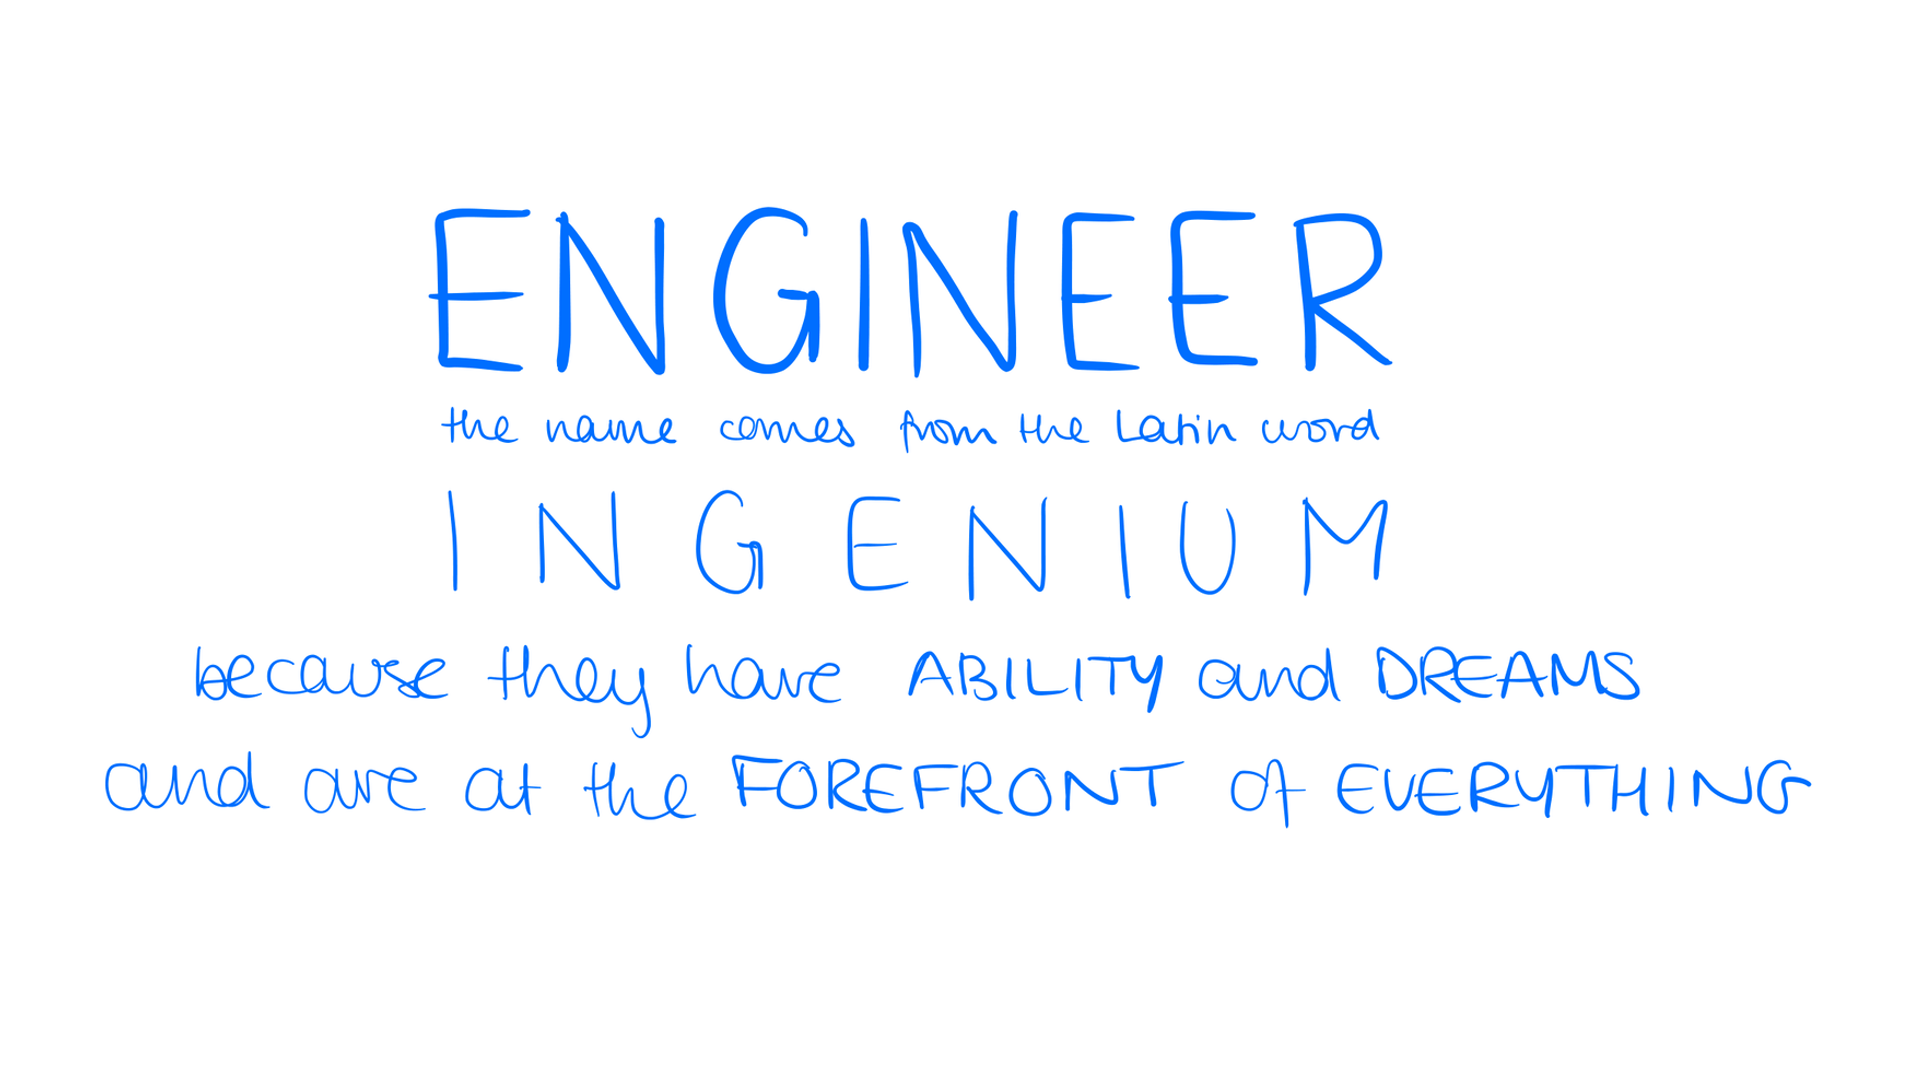 ENGINEER
the name comes from the Latin word
INGENIUM
because they have ABILITY and DREAMS
and are at the FOREFRONT of EVERYTHING